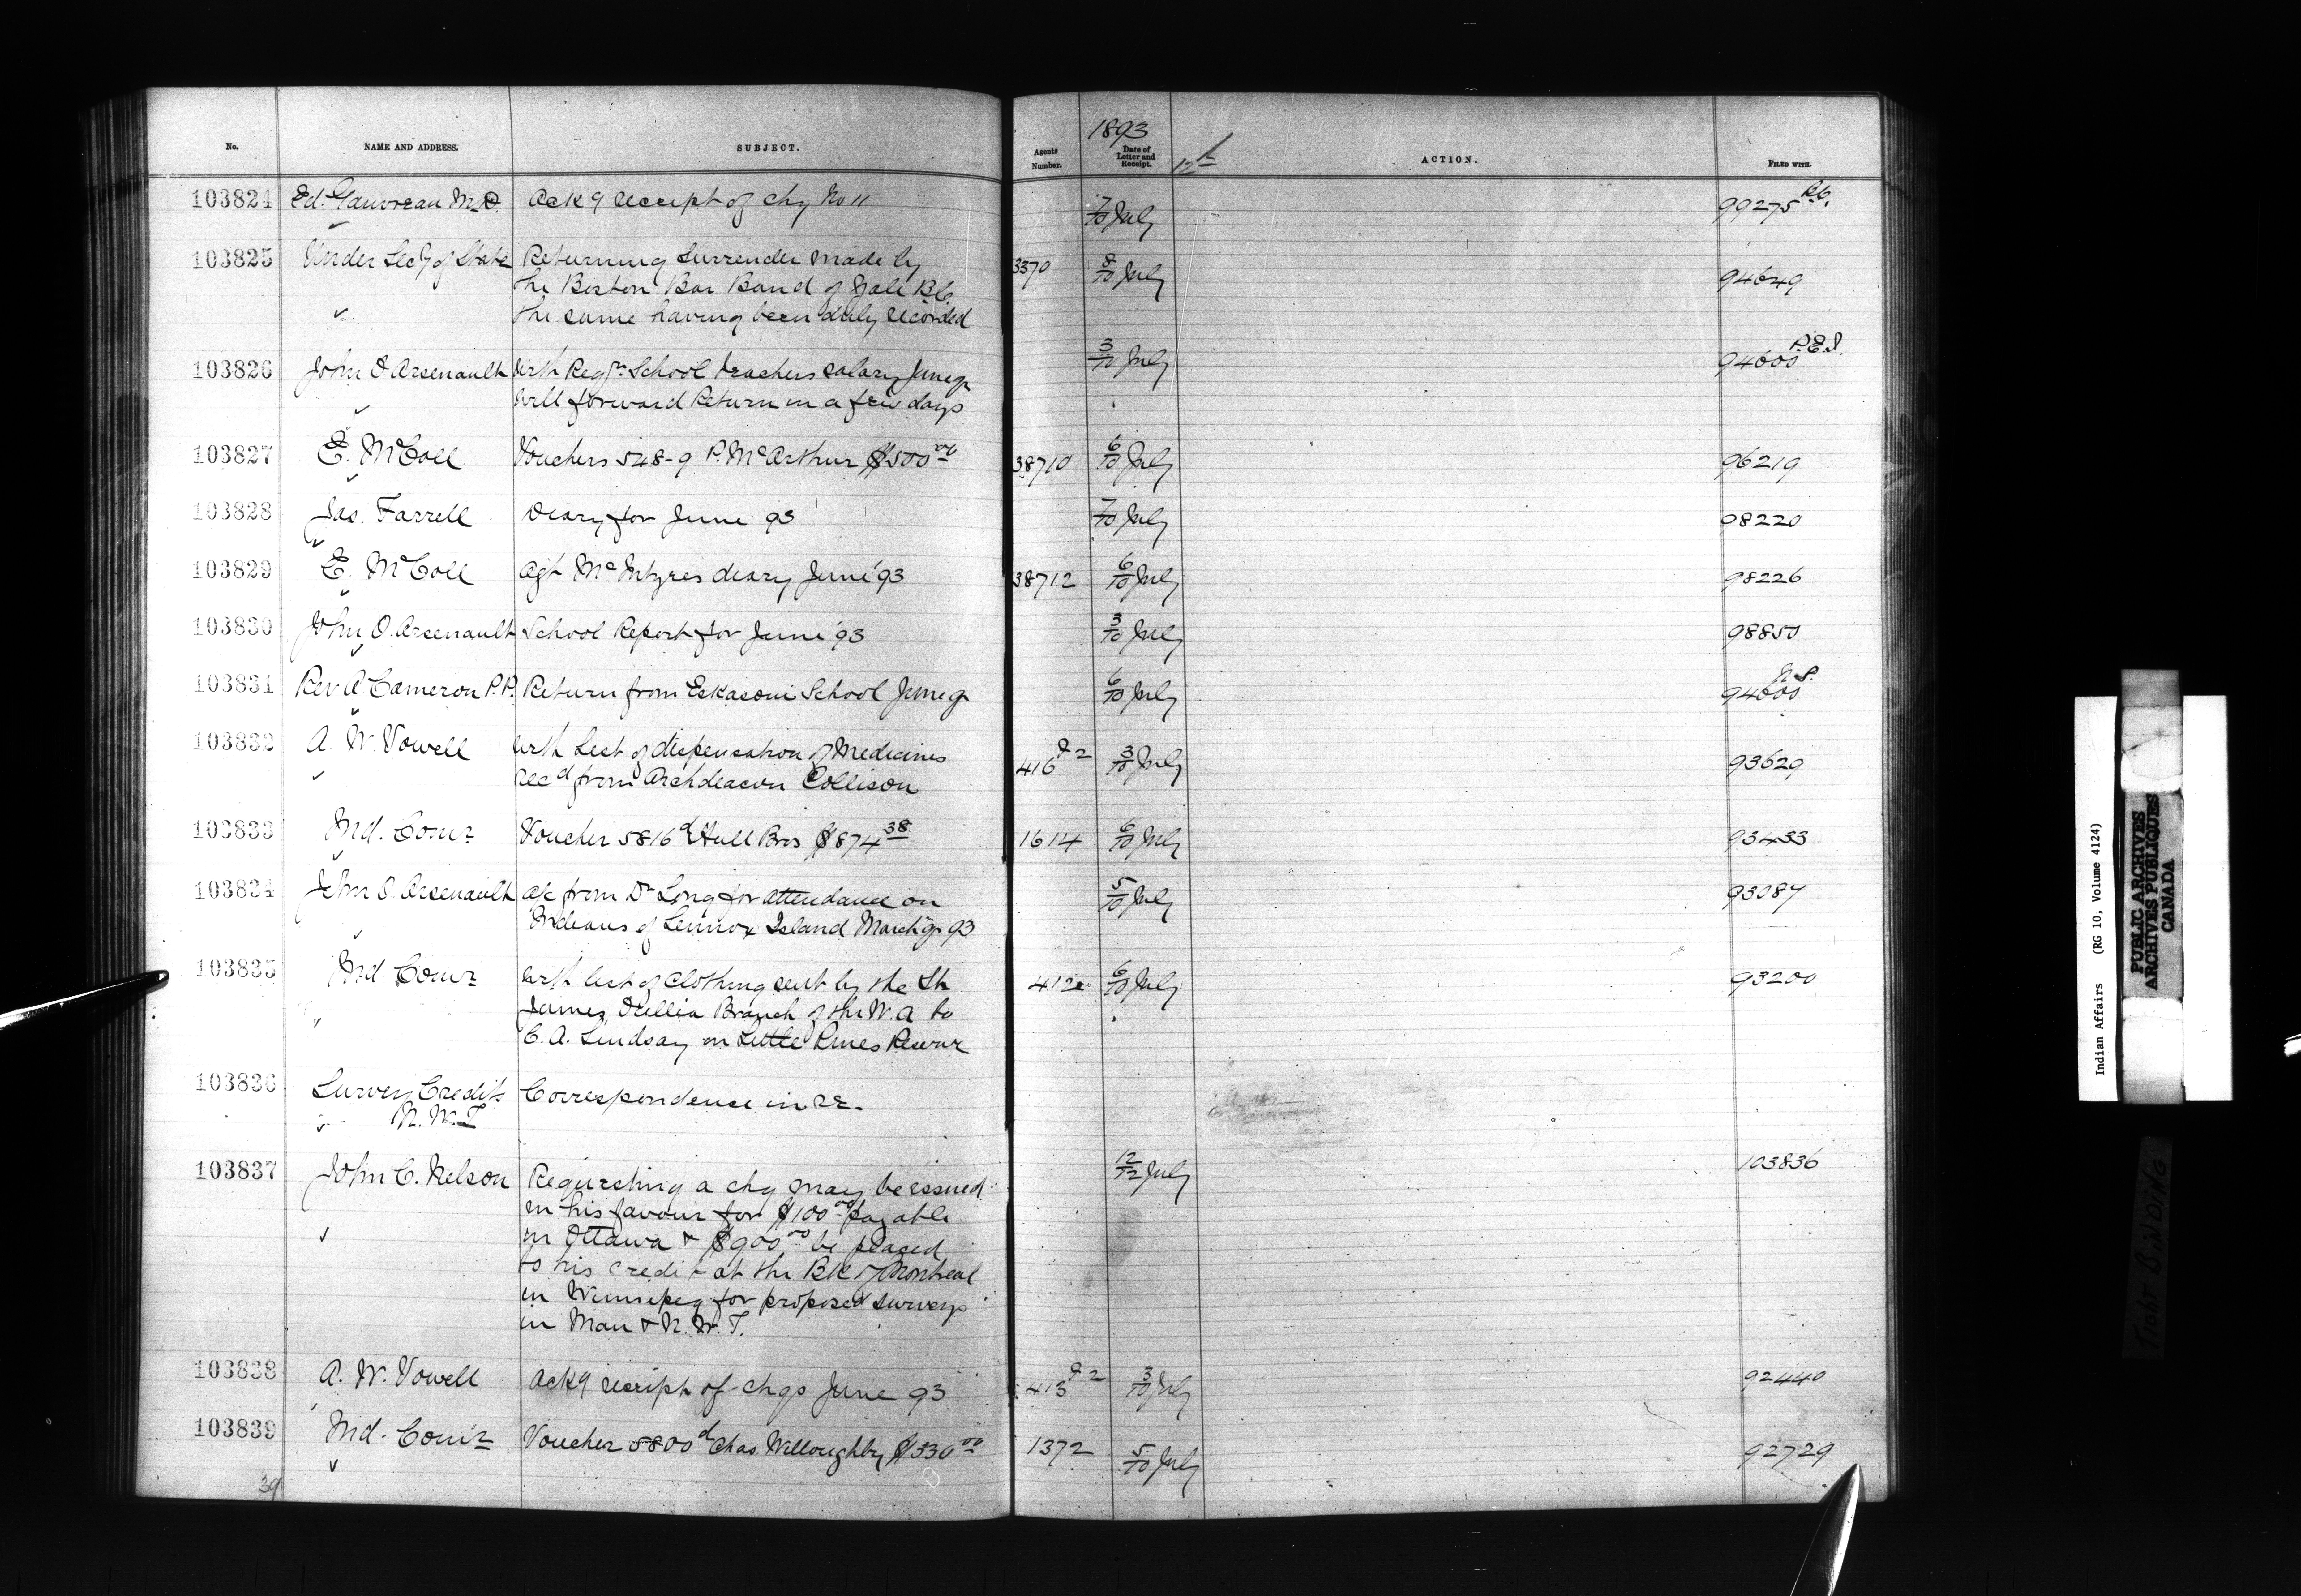 No. NAME AND ADDRESS. SUBJECT. Agents Number. 1893 Date of Letter and Receipt. 12th ACTION. FILED WITH.
103824 Ed. Gauvreau M.D. Ack'g receipt of chq No 11 7/10 July 99275 B.C.
103825 Under Sec'y of State Returning Surrender made by 3370 8/10 July 94649
the Boston Bar Band of Yale B.C.
the same having been duly recorded
103826 John O Arsenault With Reqn School teachers salary June qr 3/10 July 94600 P.E.I.
will forward Return in a few days
103827 E. McColl Vouchers 548-9 P. McArthur $500 00 38710 6/10 July 96219
103828 Jas. Farrell Diary for June 93 7/10 July 98220
103829 E. McColl Agt McIntyres diary June '93 38712 6/10 July 98226
103830 John O. Arsenault School Report for June '93 3/10 July 98850
103831 Rev A Cameron P.P. Return from Eskasoni School June qr 6/10 July 94600 N.S.
103832 A. W. Vowell With List of dispensation of Medicines 416 3/10 July 93629
rec'd from Archdeacon Collison
103833 Ind. Comr Voucher 5816 d Hull Bros $874 38 1614 6/10 July 93433
103834 John O. Arsenault a/c from Dr Long for attendance on 5/10 July 93087
Indians of Lennox Island March qr 93
103835 Ind Comr With list of clothing sent by the St 412 6/10 July 93200
James Orillia Branch of the W. A to
C. A. Lindsay on Little Pines Reserve
103836 Survey Credits Correspondence in re.
N. W. T
103837 John C. Nelson Requesting a chq may be issued 12/12 July 103836
in his favour for $100 00 payable
in Ottawa & $900 00 be placed
to his credit at the Bk of Montreal
in Winnipeg for proposed surveys
in Man & N. W. T.
103838 A. W. Vowell Ack'g receipt of chqs June 93 413 3/10 July 92440
103839 Ind. Comr Voucher 5800 d Chas. Willoughby $530 00 1372 5/10 July 92729
39
Indian Affairs (RG 10, Volume 4124)
PUBLIC ARCHIVES
ARCHIVES PUBLIQUES
CANADA
TIGHT BINDING